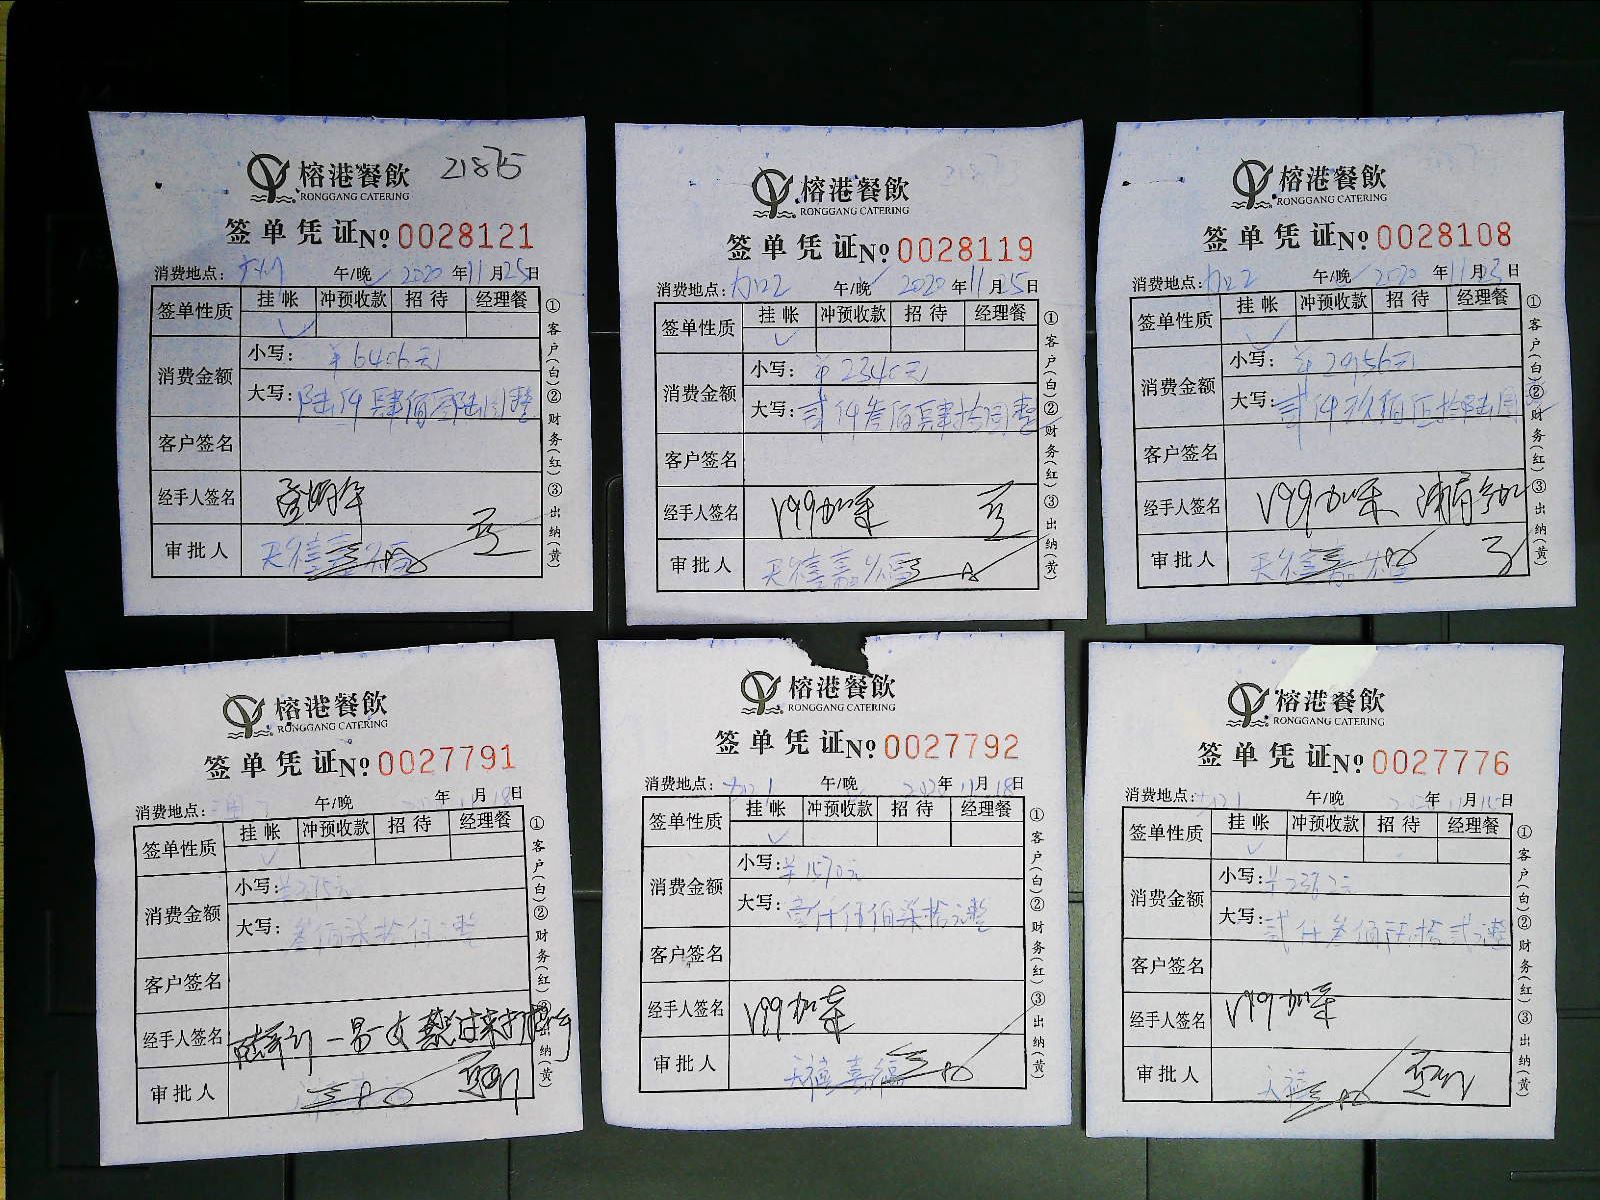 榕港餐飲 21875
RONGGANG CATERING
签单凭证No 0028121
消费地点: 午/晚 2020年11月25日
签单性质 挂帐 冲预收款 招待 经理餐
✓
消费金额
小写: ¥6406元
大写: 陆仟肆佰零陆圆整
客户签名
经手人签名
审批人 天禧嘉福
①客户(白)②财务(红)③出纳(黄)
榕港餐飲
RONGGANG CATERING
签单凭证No 0028119
消费地点: 午/晚 2020年11月25日
签单性质 挂帐 冲预收款 招待 经理餐
✓
消费金额
小写: ¥2340元
大写: 贰仟叁佰肆拾圆整
客户签名
经手人签名
审批人 天禧嘉福
①客户(白)②财务(红)③出纳(黄)
榕港餐飲
RONGGANG CATERING
签单凭证No 0028108
消费地点: 午/晚 2020年11月23日
签单性质 挂帐 冲预收款 招待 经理餐
✓
消费金额
小写: ¥2956元
大写: 贰仟玖佰伍拾陆圆
客户签名
经手人签名
审批人 天禧嘉福
①客户(白)②财务(红)③出纳(黄)
榕港餐飲
RONGGANG CATERING
签单凭证No 0027791
消费地点: 午/晚 年 月18日
签单性质 挂帐 冲预收款 招待 经理餐
✓
消费金额
小写: ¥375元
大写: 叁佰柒拾伍元整
客户签名
经手人签名
审批人
①客户(白)②财务(红)③出纳(黄)
榕港餐飲
RONGGANG CATERING
签单凭证No 0027792
消费地点: 午/晚 2020年11月18日
签单性质 挂帐 冲预收款 招待 经理餐
✓
消费金额
小写: ¥1570元
大写: 壹仟伍佰柒拾元整
客户签名
经手人签名
审批人 天禧嘉福
①客户(白)②财务(红)③出纳(黄)
榕港餐飲
RONGGANG CATERING
签单凭证No 0027776
消费地点: 午/晚 2020年11月15日
签单性质 挂帐 冲预收款 招待 经理餐
✓
消费金额
小写: ¥2362元
大写: 贰仟叁佰陆拾贰元整
客户签名
经手人签名
审批人 天禧
①客户(白)②财务(红)③出纳(黄)